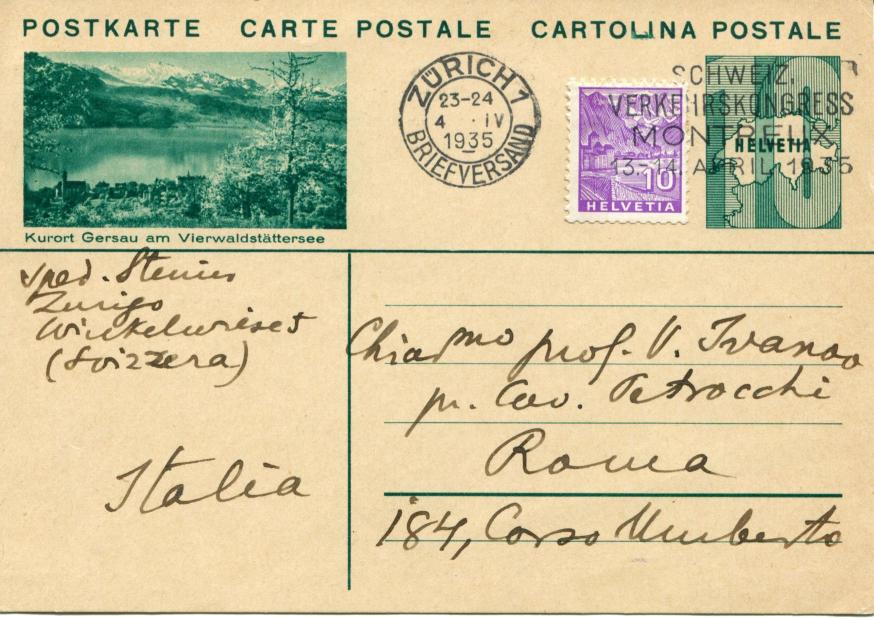 POSTKARTE CARTE POSTALE CARTOLINA POSTALE
ZÜRICH 1
23-24
4 · IV
1935
BRIEFVERSAND
SCHWEIZ.
VERKEHRSKONGRESS
MONTREUX
13.-14. APRIL 1935
10
HELVETIA
10
HELVETIA
Kurort Gersau am Vierwaldstättersee
sped. Steiner
Zurigo
Winkelwiese 5
(Svizzera)
Italia
Chiarmo prof. V. Ivanov
pr. Cav. Petrocchi
Roma
184, Corso Umberto